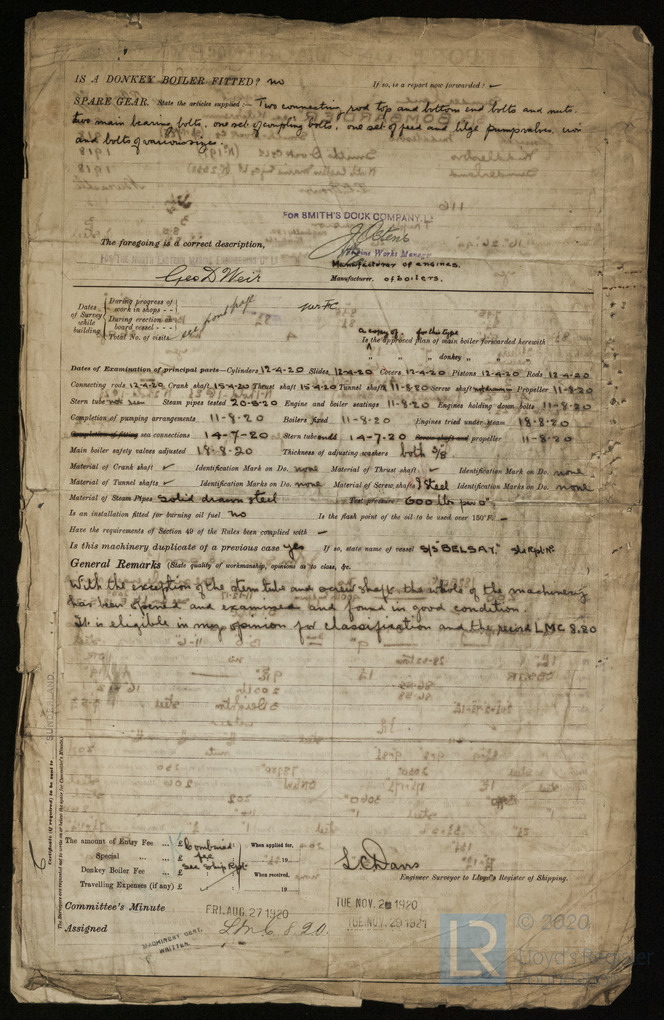 IS A DONKEY BOILER FITTED? no If so, is a report now forwarded? -
SPARE GEAR. State the articles supplied :- Two connecting rod top and bottom end bolts and nuts.
two main bearing bolts, one set of coupling bolts, one set of feed and bilge pump valves, iron
and bolts of various sizes.
FOR SMITH'S DOCK COMPANY, L
The foregoing is a correct description,
FOR THE NORTH EASTERN MARINE ENGINEERING Cº Lº
Engine Works Manager
Manufacturer of engines.
Geo D Weir Manufacturer. of boilers.
Dates of Survey while building
During progress of work in shops - -
During erection on board vessel - - -
Total No. of visits
see front part
a copy of for the type
Is the approved plan of main boiler forwarded herewith
" " " donkey " "
Dates of Examination of principal parts—Cylinders 12-4-20 Slides 12-4-20 Covers 12-4-20 Pistons 12-4-20 Rods 12-4-20
Connecting rods 12-4-20 Crank shaft 15-4-20 Thrust shaft 15-4-20 Tunnel shafts 11-8-20 Screw shaft Propeller 11-8-20
Stern tube not seen Steam pipes tested 20-5-20 Engine and boiler seatings 11-8-20 Engines holding down bolts 11-8-20
Completion of pumping arrangements 11-8-20 Boilers fixed 11-8-20 Engines tried under steam 18-8-20
Completion of fitting sea connections 14-7-20 Stern tube 14-7-20 Screw shaft and propeller 11-8-20
Main boiler safety valves adjusted 18-8-20 Thickness of adjusting washers both 3/8
Material of Crank shaft ✓ Identification Mark on Do. none Material of Thrust shaft ✓ Identification Mark on Do. none
Material of Tunnel shafts ✓ Identification Marks on Do. none Material of Screw shafts Steel Identification Marks on Do. none
Material of Steam Pipes solid drawn steel Test pressure 600 lbs pr □"
Is an installation fitted for burning oil fuel no Is the flash point of the oil to be used over 150°F. -
Have the requirements of Section 49 of the Rules been complied with -
Is this machinery duplicate of a previous case yes If so, state name of vessel S/S "BELSAY"
General Remarks (State quality of workmanship, opinions as to class, &c.
With the exception of the stern tube and screw shaft. the whole of the machinery
has been opened and examined and found in good condition.
It is eligible in my opinion for classification and the record LMC 8.20
SUNDERLAND.
Certificate (if required) to be sent to
The Surveyors are requested not to write on or below the space for Committee's Minute.
The amount of Entry Fee ... £ Combined When applied for,
Special ... ... £ fee 19
Donkey Boiler Fee ... £ see Ship Rpt When received,
Travelling Expenses (if any) £ 19
L C Davis
Engineer Surveyor to Lloyd's Register of Shipping.
Committee's Minute FRI. AUG. 27 1920 TUE NOV. 2 1920
TUE NOV. 29 1921
Assigned L.M.C 8.20.
MACHINERY CERT.
WRITTEN.
LR
© 2020
Lloyd's Register
Foundation